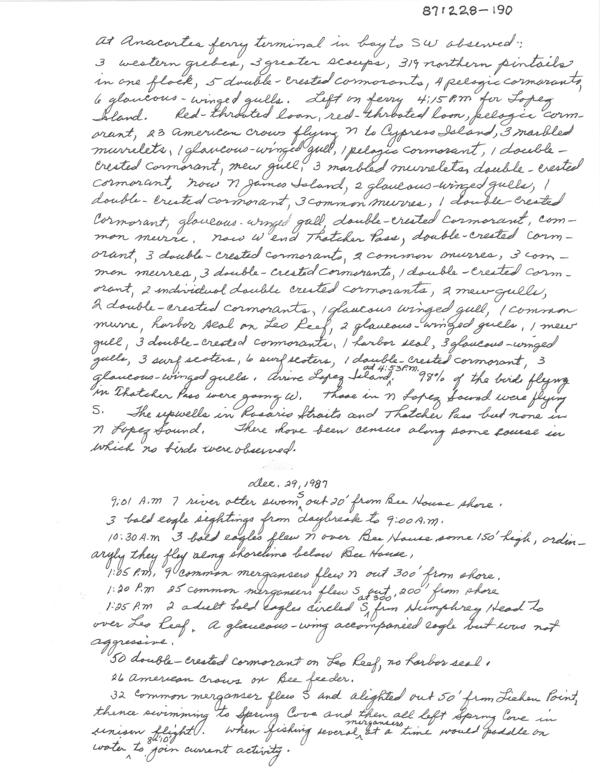 871228-190
At Anacortes ferry terminal in bay to SW observed:
3 western grebes, 3 greater scaups, 319 northern pintails
in one flock, 5 double-crested cormorants, 4 pelagic cormorants,
6 glaucous-winged gulls. Left on ferry 4:15 P.M. for Lopez
Island. Red-throated loon, red-throated loon, pelagic corm-
orant, 23 American crows flying N to Cypress Island, 3 marbled
murrelets, 1 glaucous-winged gull, 1 pelagic cormorant, 1 double-
crested cormorant, mew gull, 3 marbled murrelets, double-crested
cormorant, now N James Island, 2 glaucous-winged gulls, 1
double-crested cormorant, 3 common murres, 1 double-crested
cormorant, glaucous-winged gull, double-crested cormorant, com-
mon murre. Now W end Thatcher Pass, double-crested corm-
orant, 3 double-crested cormorants, 2 common murres, 3 com-
mon murres, 3 double-crested cormorants, 1 double-crested corm-
orant, 2 individual double crested cormorants, 2 mew gulls,
2 double-crested cormorants, 1 glaucous winged gull, 1 common
murre, harbor seal on Leo Reef, 2 glaucous-winged gulls, 1 mew
gull, 3 double-crested cormorants, 1 harbor seal, 3 glaucous-winged
gulls, 3 surf scoters, 6 surf scoters, 1 double-crested cormorant, 3
glaucous-winged gulls. Arrive Lopez Island at 4:53 P.M. 98% of the birds flying
in Thatcher Pass were going W. Those in N Lopez Sound were flying
S. The upwells in Rosario Straits and Thatcher Pass but none in
N Lopez Sound. There have been census along same course in
which no birds were observed.
Dec. 29, 1987
9:01 A.M. 7 river otter swam S out 20' from Bee House shore.
3 bald eagle sightings from daybreak to 9:00 A.M.
10:30 A.M 3 bald eagles flew N over Bee House some 150' high, ordin-
aryly they fly along shoreline below Bee House.
1:05 P.M. 9 common mergansers flew N out 300' from shore.
1:20 P.M 25 common mergansers flew S out 200' from shore
1:25 P.M 2 adult bald eagles circled at 300' S from Humphrey Head to
over Leo Reef. A glaucous-wing accompanied eagle but was not
aggressive.
50 double-crested cormorant on Leo Reef, no harbor seal.
26 American crows on Bee feeder.
32 common merganser flew S and alighted out 50' from Lichen Point,
thence swimming to Spring Cove and then all left Spring Cove in
unison flight. When fishing several mergansers at a time would paddle on
water 8'-10' to join current activity.